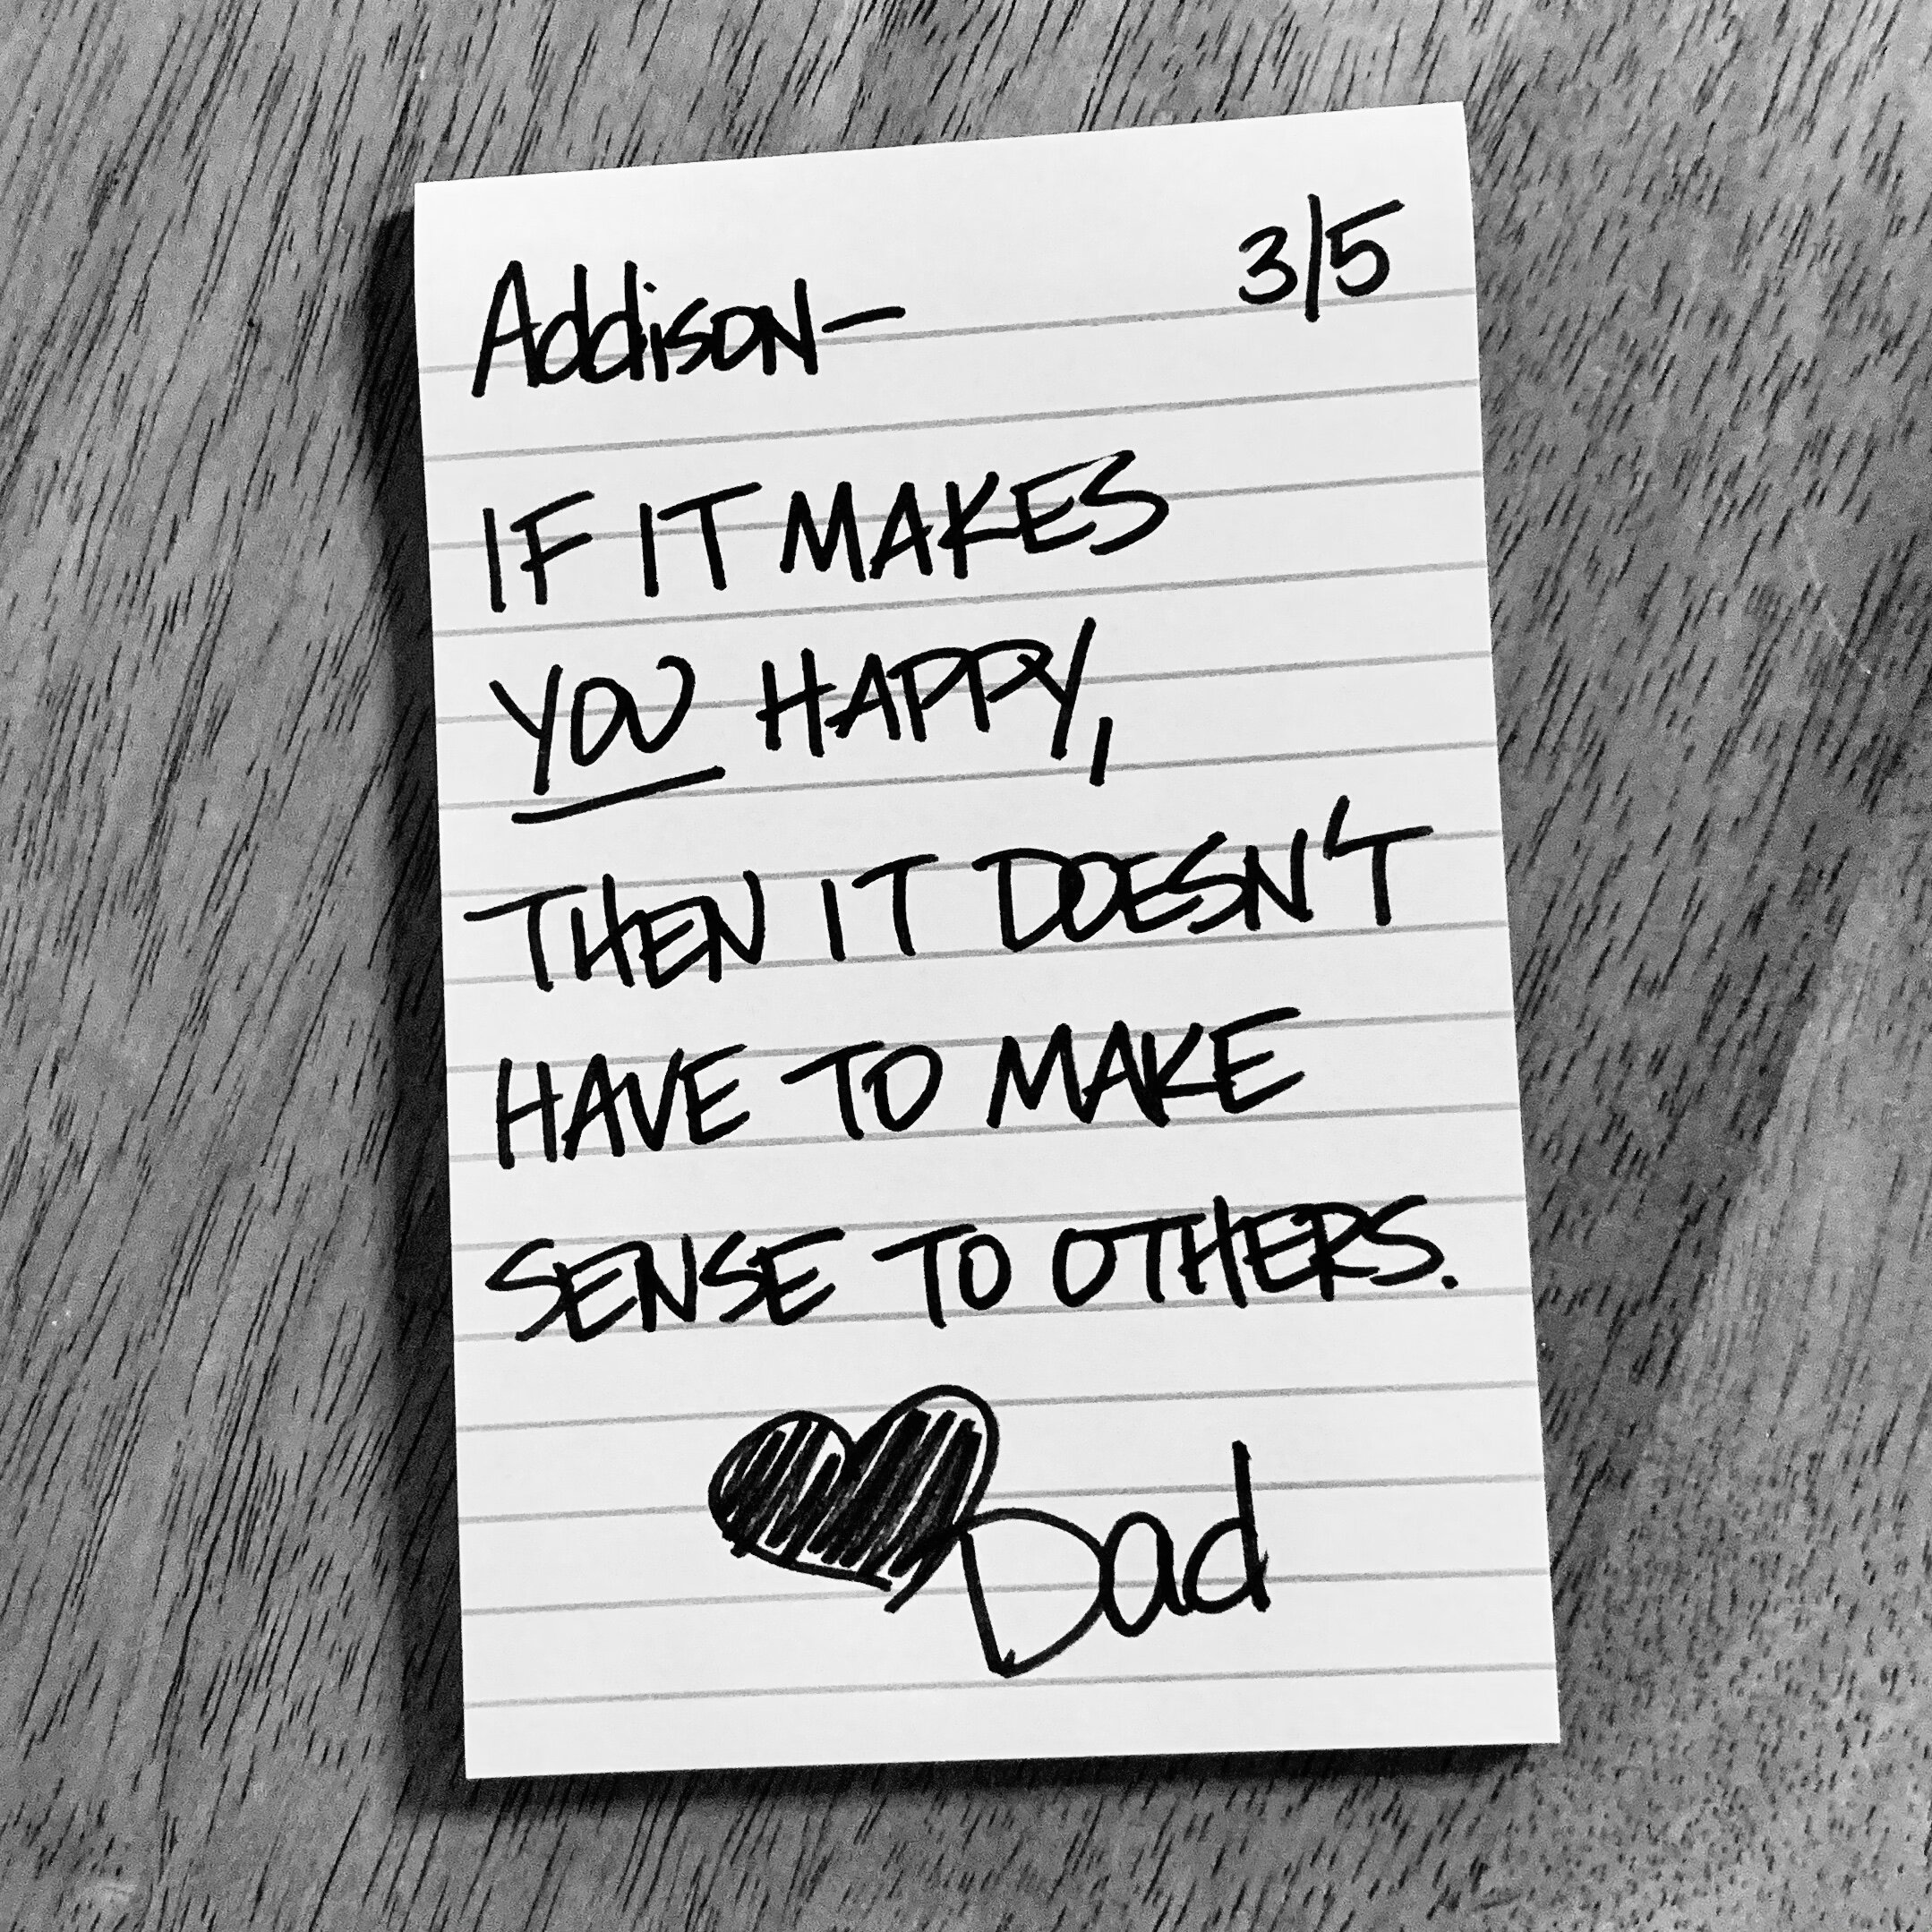 Addison— 3/5
IF IT MAKES
YOU HAPPY,
THEN IT DOESN'T
HAVE TO MAKE
SENSE TO OTHERS.
Dad